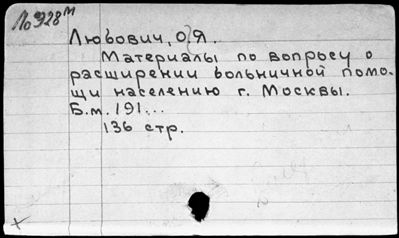 № 928 м
Любович, О. Я.
Материалы по вопросу о
расширении больничной помо-
щи населению г. Москвы.
Б.м. 191...
136 стр.